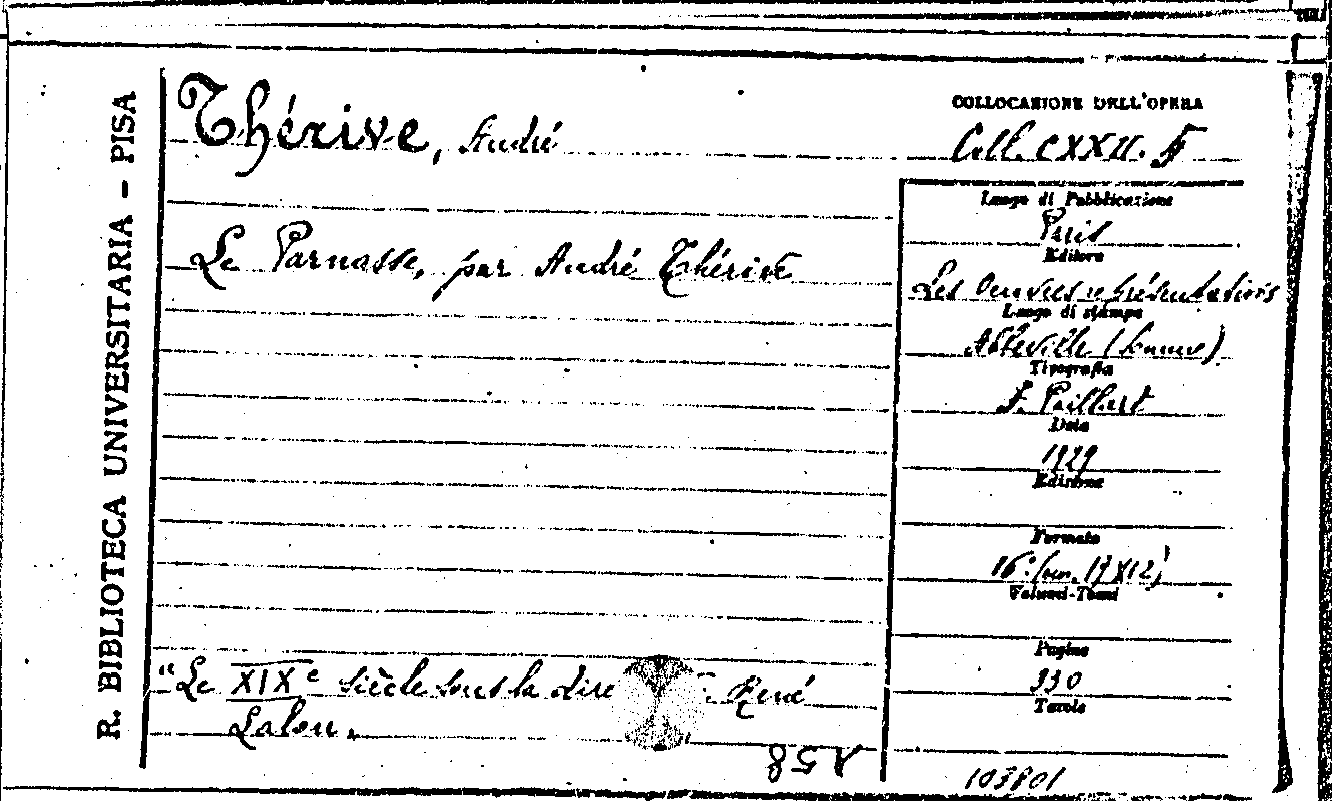 R. BIBLIOTECA UNIVERSITARIA - PISA
Thérive, André
Le Parnasse, par André Thérive
"Le XIXe siècle sous la dire René
Lalou.
COLLOCAZIONE DELL'OPERA
Coll. CXXII. F
Luogo di Pubblicazione
Paris
Editore
Les Oeuvres représentatives
Luogo di stampa
Abbeville (Somme)
Tipografia
F. Paillart
Data
1929
Edizione
Formato
16° (cm. 19X12)
Volumi-Tomi
Pagine
330
Tavole
103801